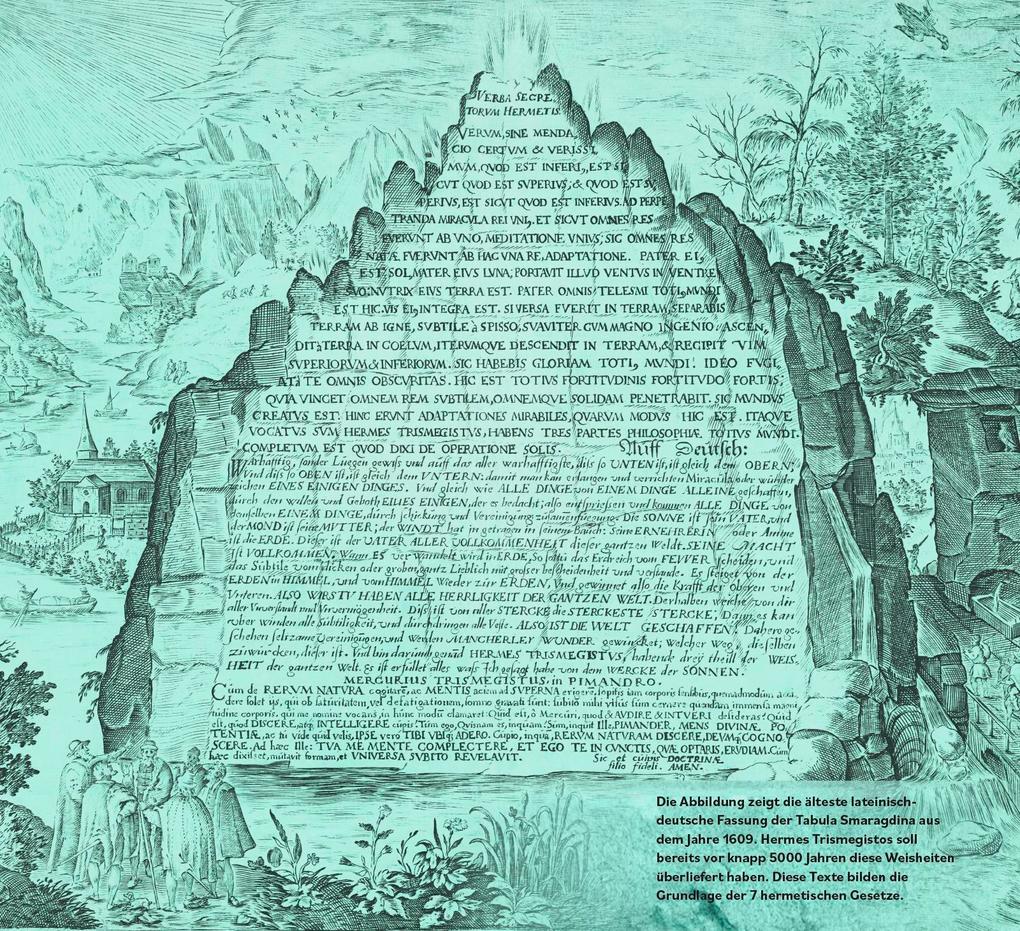 VERBA SECRE,
TORUM HERMETIS.
VERVM, SINE MENDA,
CIO CERTVM & VERISSI,
MVM, QVOD EST INFERI,, EST SI,
CVT QVOD EST SVPERIVS; & QVOD EST SV,
PERIVS, EST SICVT QVOD EST INFERIVS. AD PERPE
TRANDA MIRACVLA REI VNI,, ET SICVT OMNES RES
FVERVNT AB VNO, MEDITATIONE VNIVS; SIC OMNES RES
NATÆ FVERVNT AB HAC VNA RE, ADAPTATIONE. PATER EI,
EST SOL, MATER EIVS LVNA; PORTAVIT ILLVD VENTVS IN VENTRE
SVO; NVTRIX EIVS TERRA EST. PATER OMNIS TELESMI TOTI, MVNDI
EST HIC. VIS EI, INTEGRA EST. SI VERSA FVERIT IN TERRAM, SEPARABIS
TERRAM AB IGNE, SVBTILE à SPISSO, SVAVITER CVM MAGNO INGENIO. ASCEN,
DIT à TERRA IN COELVM, ITERVMQVE DESCENDIT IN TERRAM, & RECIPIT VIM
SVPERIORVM & INFERIORVM. SIC HABEBIS GLORIAM TOTI, MVNDI. IDEO FVGI,
AT à TE OMNIS OBSCVRITAS. HIC EST TOTIVS FORTITVDINIS FORTITVDO FORTIS;
QVIA VINCET OMNEM REM SVBTILEM, OMNEMQVE SOLIDAM PENETRABIT. SIC MVNDVS
CREATVS EST. HINC ERVNT ADAPTATIONES MIRABILES, QVARVM MODVS HIC EST. ITAQVE
VOCATVS SVM HERMES TRISMEGISTVS, HABENS TRES PARTES PHILOSOPHIÆ TOTIVS MVNDI.
COMPLETVM EST QVOD DIXI DE OPERATIONE SOLIS. Auff Deutsch:
Warhafftig, sonder Luegen gewiss und auff das aller warhafftigste, diss so UNTEN ist, ist gleich dem OBERN;
Vnd diss so OBEN ist, ist gleich dem VNTERN: damit man kan erlangen und verrichten Miracula oder wunder
zeichen EINES EINIGEN DINGES. Vnd gleich wie ALLE DINGE von EINEM DINGE ALLEINE geschaffen,
durch den willen und Geboth EINES EINIGEN, der es bedacht; also entspriessen und kommen ALLE DINGE von
demselben EINEM DINGE, durch schickung und Vereinigung zusammenfuegung. Die SONNE ist sein VATER, und
der MOND ist seine MVTTER; der WINDT hat in getragen in seinem Bauch: Seine ERNEHRERIN oder Amme
ist die ERDE. Dieser ist der VATER ALLER VOLLKOMMENHEIT dieser gantzen Weldt. SEINE MACHT
ist VOLLKOMMEN, Wann ES verwandelt wird in ERDE, So soltu das Erdreich vom FEVER scheiden, und
das Subtile vom dicken oder groben, gantz Lieblich mit grosser bescheidenheit und verstande. Es steiget von der
ERDEN in HIMMEL, und vom HIMMEL Wieder zur ERDEN, Vnd gewinnet also die Krafft der obern und
Vnteren. ALSO WIRSTV HABEN ALLE HERRLIGKEIT DER GANTZEN WELT. Derhalben weiche von dir
aller Vnverstandt und Vnvermögenheit. Diss ist von aller STERCKE die STERCKESTE STERCKE, Dann es kan
uber winden alle Subtiligkeit, und durchdringen alle Veste. ALSO IST DIE WELT GESCHAFFEN. Dahero ge,
schehen seltzame Vereinigungen, und Werden MANCHERLEY WUNDER gewürcket; Welcher Weg, dieselben
zuwürcken, dieser ist. Vnd bin darumb genād HERMES TRISMEGISTVS, habende drey theill der WEIS,
HEIT der gantzen Welt. Es ist erfüllet alles wass Ich gesagt habe von dem WERCKE der SONNEN.
MERCURIUS TRISMEGISTUS, in PIMANDRO.
Cum de RERVM NATVRA cogitarē, ac MENTIS aciem ad SVPERNA erigerē, sopitis iam corporis sensibus, quemadmodum acci,
dere solet ijs, qui ob saturitatem, vel defatigationem, somno gravati sunt; subito mihi visus sum cernere quendam immensa magni
tudine corporis, qui me nomine vocans, in hunc modū clamaret: Quid est, ô Mercuri, quod & AVDIRE & INTVERI desideras? Quid
est, quod DISCERE, atq, INTELLIGERE cupis? Tum ego, Quisnam es, inquam? Sum, inquit Ille, PIMANDER, MENS DIVINÆ PO,
TENTIÆ, ac tu vide quid velis, IPSE vero TIBI VBIQ, ADERO. Cupio, inquā, RERVM NATVRAM DISCERE, DEVMq, COGNO,
SCERE. Ad hæc Ille: TVA ME MENTE COMPLECTERE, ET EGO TE IN CVNCTIS, QVÆ OPTARIS, ERVDIAM. Cum
hæc dixisset, mutavit formam, et VNIVERSA SVBITO REVELAVIT.
Sic et cuivis DOCTRINÆ
filio fideli. AMEN.
Die Abbildung zeigt die älteste lateinisch-
deutsche Fassung der Tabula Smaragdina aus
dem Jahre 1609. Hermes Trismegistos soll
bereits vor knapp 5000 Jahren diese Weisheiten
überliefert haben. Diese Texte bilden die
Grundlage der 7 hermetischen Gesetze.